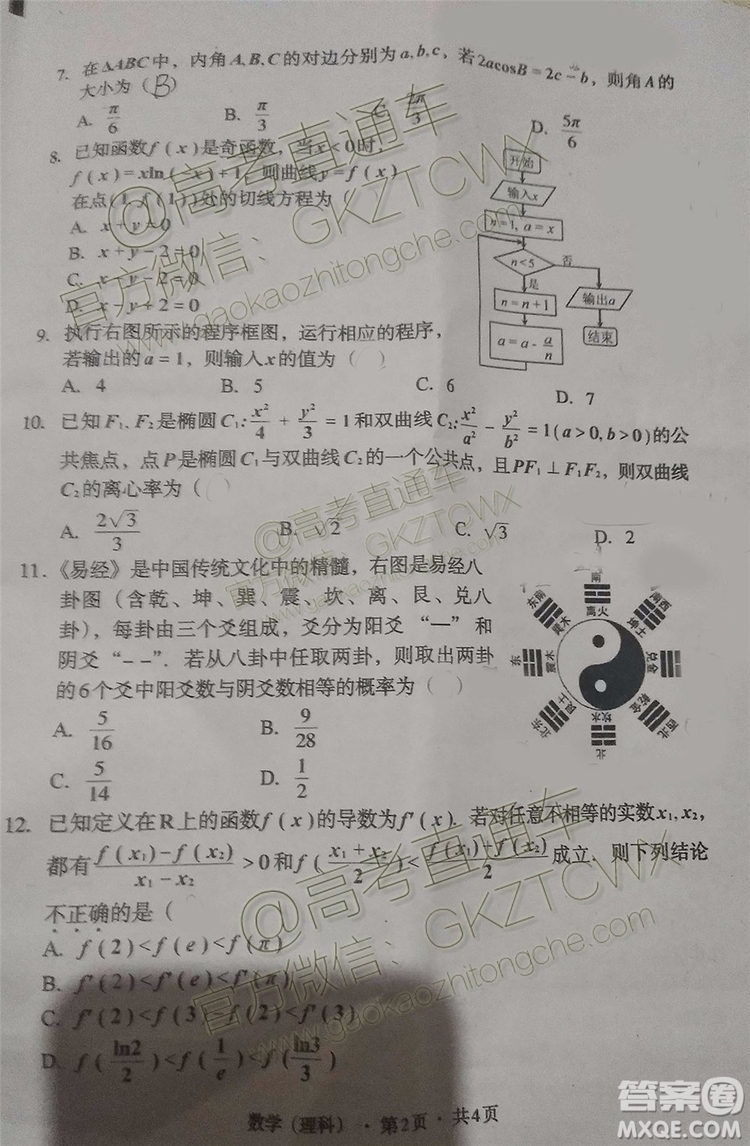 7. 在△ABC中，内角A,B,C的对边分别为a,b,c，若2acosB=2c-b，则角A的
大小为（B）
A. π/6 B. π/3 C. 2π/3 D. 5π/6
8. 已知函数f(x)是奇函数，当x<0时，
f(x)=xln(-x)+1，则曲线y=f(x)
在点(1,f(1))处的切线方程为（ ）
A. x+y=0
B. x+y-2=0
C. x-y=0
D. x-y+2=0
开始
输入x
n=1, a=x
n<5
否
是
n=n+1
输出a
a=a-a/n
结束
9. 执行右图所示的程序框图，运行相应的程序，
若输出的a=1，则输入x的值为（ ）
A. 4 B. 5 C. 6 D. 7
10. 已知F₁,F₂是椭圆C₁:x²/4+y²/3=1和双曲线C₂:x²/a²-y²/b²=1(a>0,b>0)的公
共焦点，点P是椭圆C₁与双曲线C₂的一个公共点，且PF₁⊥F₁F₂，则双曲线
C₂的离心率为（ ）
A. 2√3/3 B. √2 C. √3 D. 2
11.《易经》是中国传统文化中的精髓，右图是易经八
卦图（含乾、坤、巽、震、坎、离、艮、兑八
卦），每卦由三个爻组成，爻分为阳爻“—”和
阴爻“- -”. 若从八卦中任取两卦，则取出的两卦
的6个爻中阳爻数与阴爻数相等的概率为（ ）
A. 5/16 B. 9/28
C. 5/14 D. 1/2
南
离火
东南
巽木
西南
坤土
东
震木
兑金
东北
艮土
坎水
北
乾金
西北
12. 已知定义在R上的函数f(x)的导数为f'(x). 若对任意不相等的实数x₁,x₂，
都有(f(x₁)-f(x₂))/(x₁-x₂)>0和f((x₁+x₂)/2)<(f(x₁)+f(x₂))/2成立. 则下列结论
不正确的是（
A. f(2)<f(e)<f(π)
B. f'(2)<f'(e)<f'(π)
C. f'(2)<f(3)-f(2)<f'(3)
D. f(ln2/2)<f(1/e)<f(ln3/3)
数学（理科）·第2页·共4页
@高考直通车
官方微信：GKZTCWX
www.gaokaozhitongche.com
@高考直通车
官方微信：GKZTCWX
@高考直通车
官方微信：GKZTCWX
www.gaokaozhitongche.com
答案圈
MXQE.COM